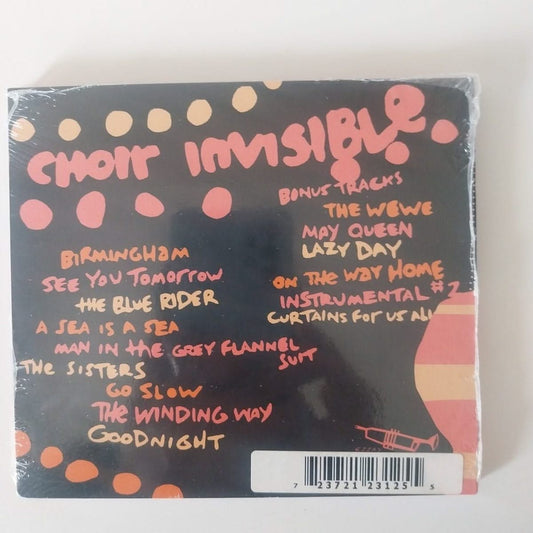 CHOIR INVISIBLE
BIRMINGHAM
SEE YOU TOMORROW
THE BLUE RIDER
A SEA IS A SEA
MAN IN THE GREY FLANNEL
SUIT
THE SISTERS
GO SLOW
THE WINDING WAY
GOODNIGHT
BONUS TRACKS
THE WEWE
MAY QUEEN
LAZY DAY
ON THE WAY HOME
INSTRUMENTAL #2
CURTAINS FOR US ALL
7 23721 23125 5